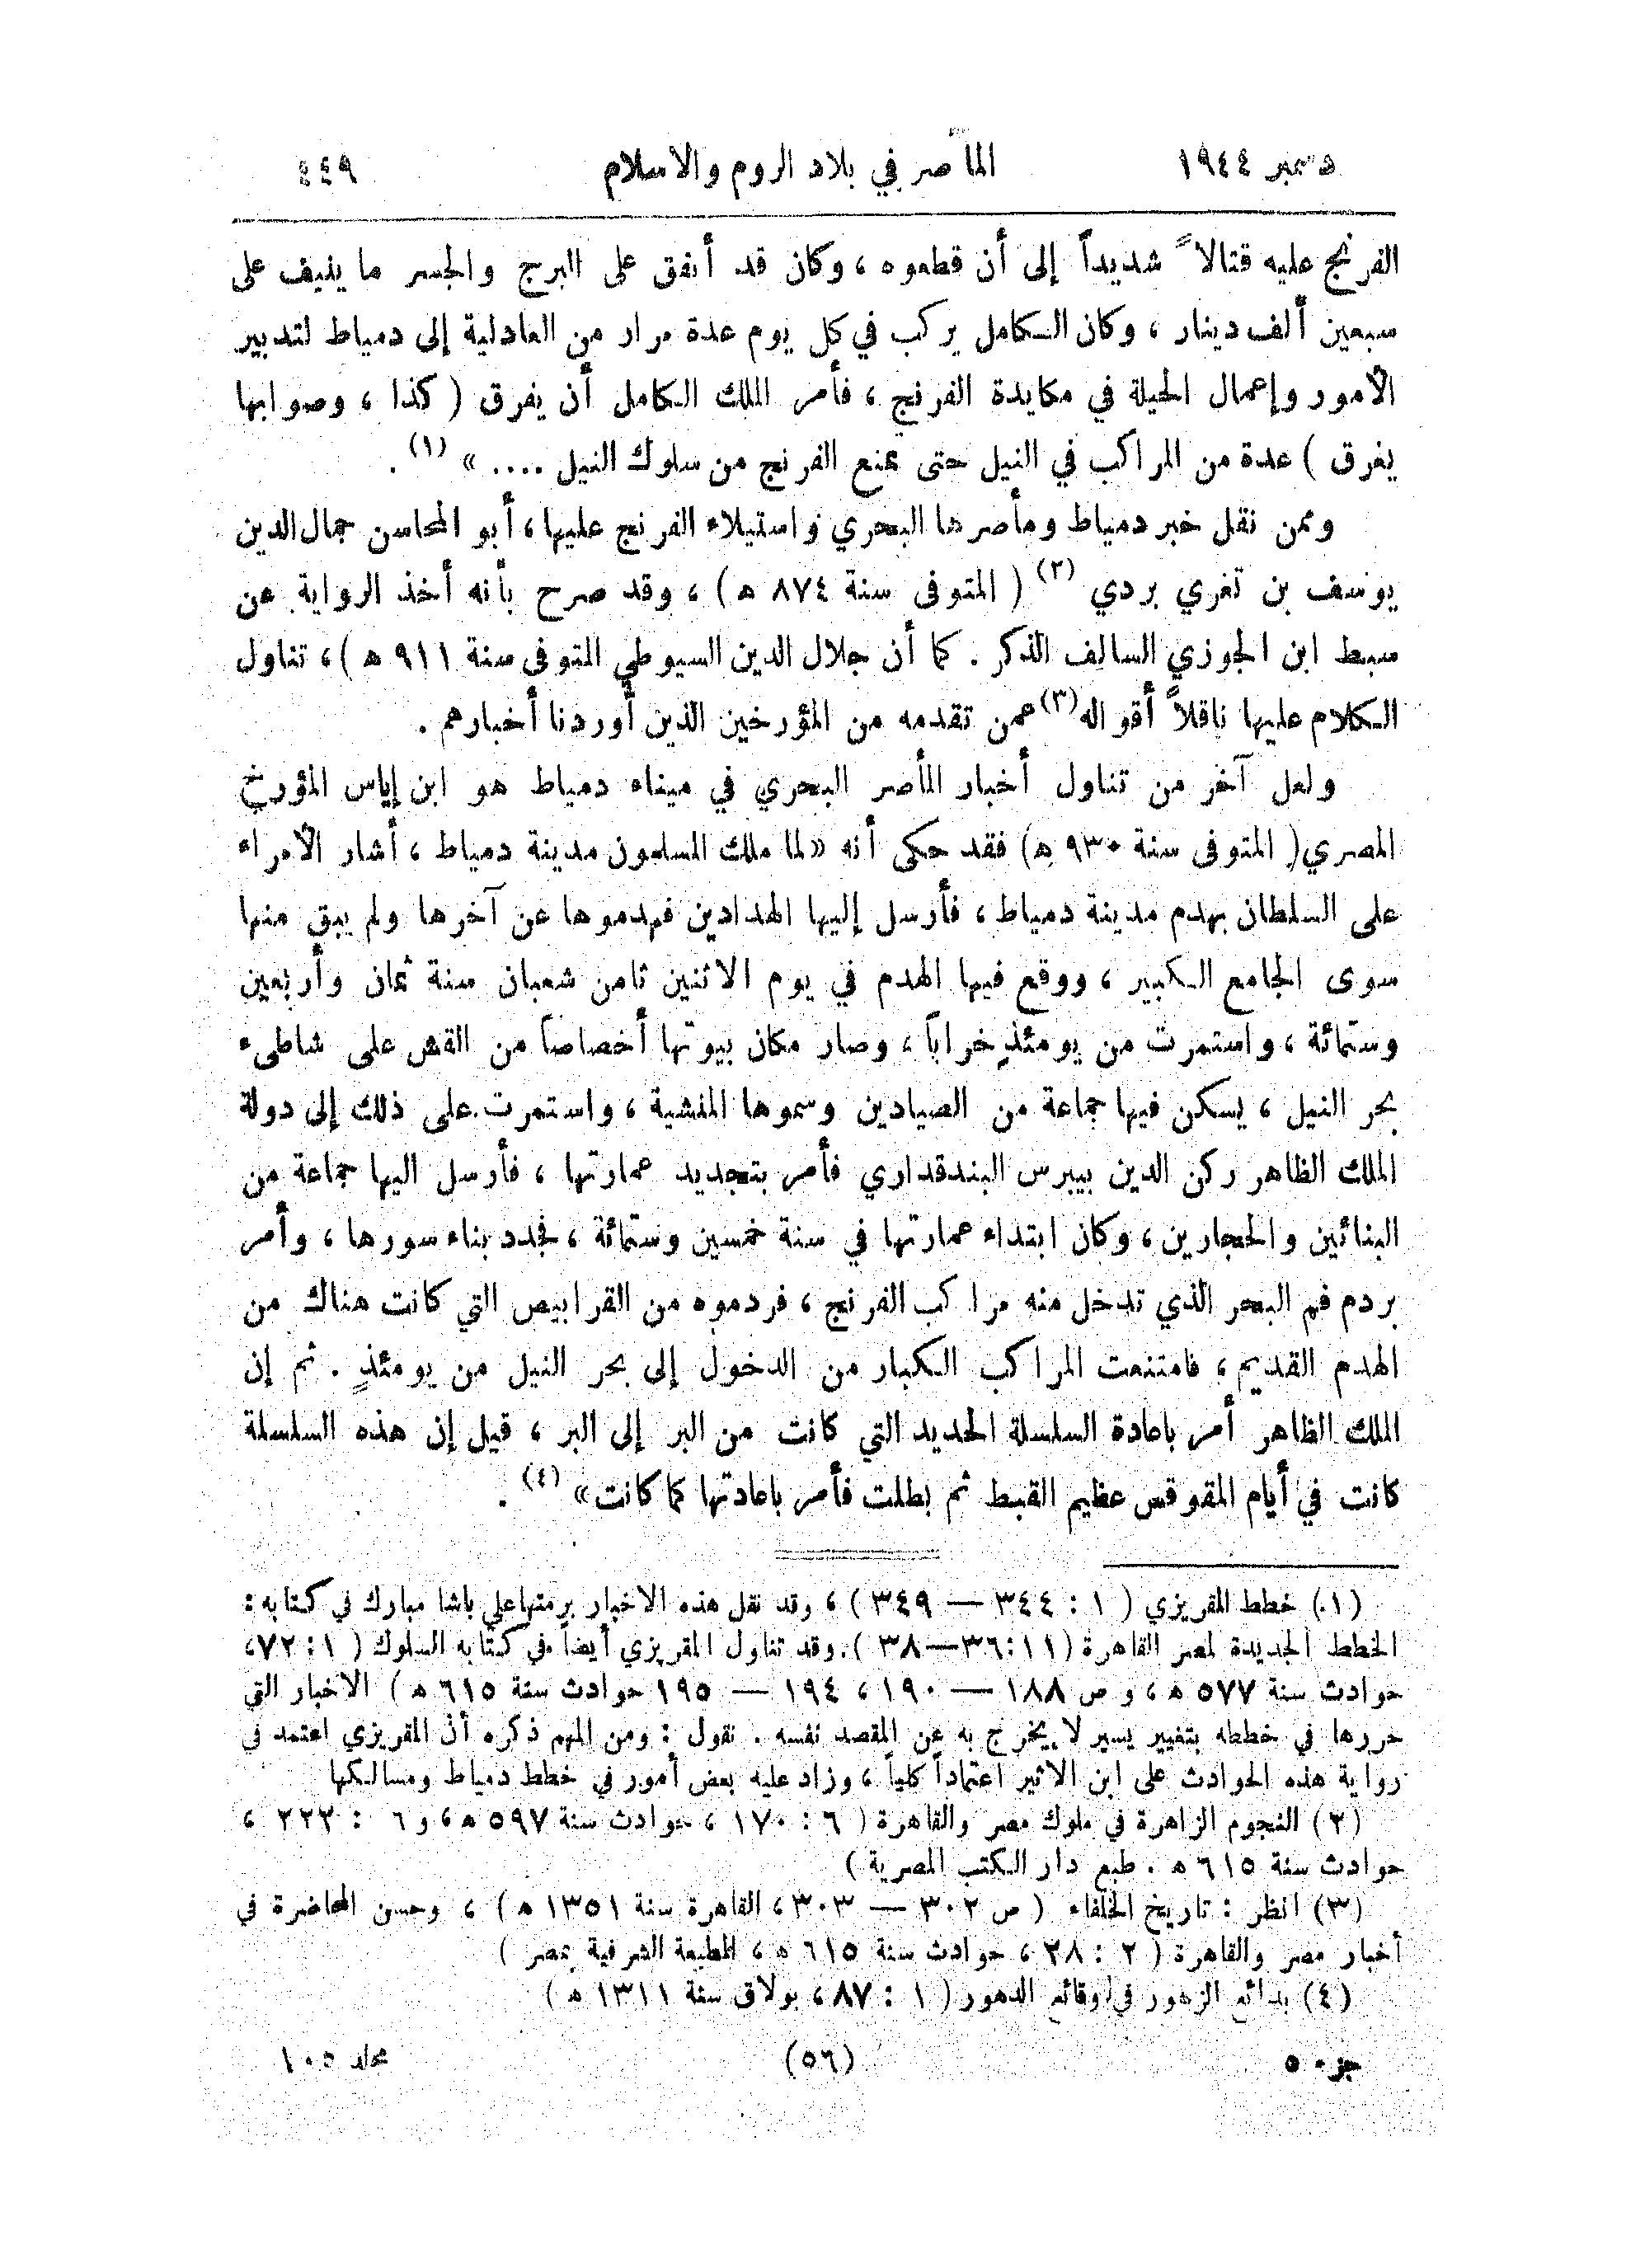 دسمبر ١٩٤٤ المآصر في بلاد الروم والاسلام ٤٤٩
الفرنج عليه قتالاً شديداً إلى أن قطعوه ، وكان قد أنفق على البرج والجسر ما ينيف على
سبعين ألف دينار ، وكان الكامل يركب في كل يوم عدة مرار من العادلية إلى دمياط لتدبير
الأمور وإعمال الحيلة في مكايدة الفرنج ، فأمر الملك الكامل أن يفرق ( كذا ، وصوابها
يغرق ) عدة من المراكب في النيل حتى يمنع الفرنج من سلوك النيل .... » (١) .
وممن نقل خبر دمياط ومأصرها البحري واستيلاء الفرنج عليها ، أبو المحاسن جمال الدين
يوسف بن تغري بردي (٢) ( المتوفى سنة ٨٧٤ ه ) ، وقد صرح بأنه أخذ الرواية عن
سبط ابن الجوزي السالف الذكر . كما أن جلال الدين السيوطي المتوفى سنة ٩١١ ه ) ، تناول
الكلام عليها ناقلاً أقواله (٣) عمن تقدمه من المؤرخين الذين أوردنا أخبارهم .
ولعل آخر من تناول أخبار المأصر البحري في ميناء دمياط هو ابن إياس المؤرخ
المصري ( المتوفى سنة ٩٣٠ ه ) فقد حكى أنه « لما ملك المسلمون مدينة دمياط ، أشار الأمراء
على السلطان بهدم مدينة دمياط ، فأرسل إليها الهدادين فهدموها عن آخرها ولم يبق منها
سوى الجامع الكبير ، ووقع فيها الهدم في يوم الاثنين ثامن شعبان سنة ثمان وأربعين
وستمائة ، واستمرت من يومئذٍ خراباً ، وصار مكان بيوتها أخصاصاً من القش على شاطىء
بحر النيل ، يسكن فيها جماعة من الصيادين وسموها المنشية ، واستمرت على ذلك إلى دولة
الملك الظاهر ركن الدين بيبرس البندقداري فأمر بتجديد عمارتها ، فأرسل اليها جماعة من
البنائين والحجارين ، وكان ابتداء عمارتها في سنة خمسين وستمائة ، فجدد بناء سورها ، وأمر
بردم فم البحر الذي تدخل منه مراكب الفرنج ، فردموه من القرابيص التي كانت هناك من
الهدم القديم ، فامتنعت المراكب الكبار من الدخول إلى بحر النيل من يومئذٍ . ثم إن
الملك الظاهر أمر باعادة السلسلة الحديد التي كانت من البر إلى البر ، قيل إن هذه السلسلة
كانت في أيام المقوقس عظيم القبط ثم بطلت فأمر باعادتها كما كانت » (٤) .
(١) خطط المقريزي ( ١ : ٣٤٤ — ٣٤٩ ) ، وقد نقل هذه الاخبار برمتها علي باشا مبارك في كتابه :
الخطط الجديدة لمصر القاهرة ( ١١ : ٣٦ — ٣٨ ) . وقد تناول المقريزي أيضاً في كتابه السلوك ( ١ : ٧٢ ،
حوادث سنة ٥٧٧ ه ، و ص ١٨٨ — ١٩٠ ، ١٩٤ — ١٩٥ حوادث سنة ٦١٥ ه ) الاخبار التي
حررها في خططه بتغيير يسير لا يخرج به عن المقصد نفسه . نقول : ومن المهم ذكره أن المقريزي اعتمد في
رواية هذه الحوادث على ابن الاثير اعتماداً كلياً ، وزاد عليه بعض أمور في خطط دمياط ومسالكها
(٢) النجوم الزاهرة في ملوك مصر والقاهرة ( ٦ : ١٧٠ ، حوادث سنة ٥٩٧ ه ، و ٦ : ٢٢٣ ،
حوادث سنة ٦١٥ ه . طبع دار الكتب المصرية )
(٣) انظر : تاريخ الخلفاء ( ص ٣٠٢ — ٣٠٣ ، القاهرة سنة ١٣٥١ ه ) ، وحسن المحاضرة في
أخبار مصر والقاهرة ( ٢ : ٢٨ ، حوادث سنة ٦١٥ ه ، المطبعة الشرفية بمصر )
(٤) بدائع الزهور في وقائع الدهور ( ١ : ٨٧ ، بولاق سنة ١٣١١ ه )
جزء ٥ (٥٦) مجلد ١٠٥